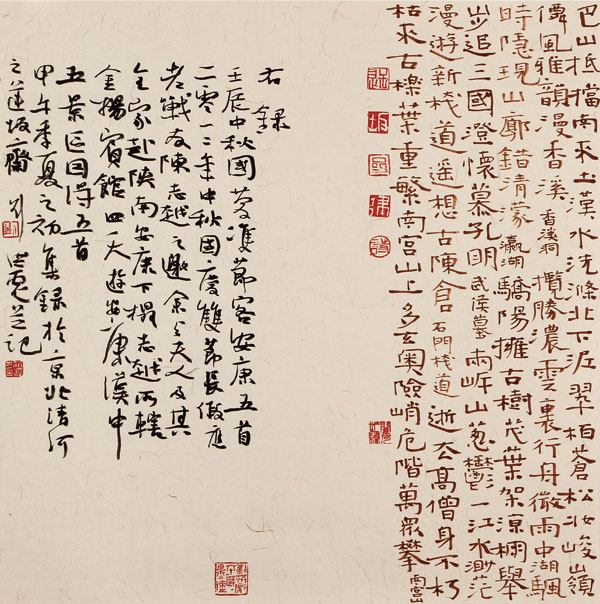 巴山抵擋南來土漢水洗滌北下泥翠柏蒼松壯峻嶺
風雅韻漫香溪香溪洞攬勝濃雲裏行舟微雨中湖颿
時隱現山廓錯清濛瀛湖驕陽擁古樹茂葉架涼棚舉
步追三國澄懷慕孔明武侯墓兩岸山蔥鬱一江水渺茫
漫遊新棧道遙想古陳倉石門棧道逝去高僧身不朽
枯來古櫟葉重繁南宮山上多玄奧險峭危階萬眾攀南宮山
右錄
壬辰中秋國慶雙節客安康五首
二零一二年中秋國慶雙節長假應
老戰友陳志越之邀余与夫人及其
全家赴陝南安康下榻志越所轄
金賓館四天遊安康漢中
五景區因得五首
甲午季夏之初集錄於京北清河
之蓮坂齋劉洪彪并記